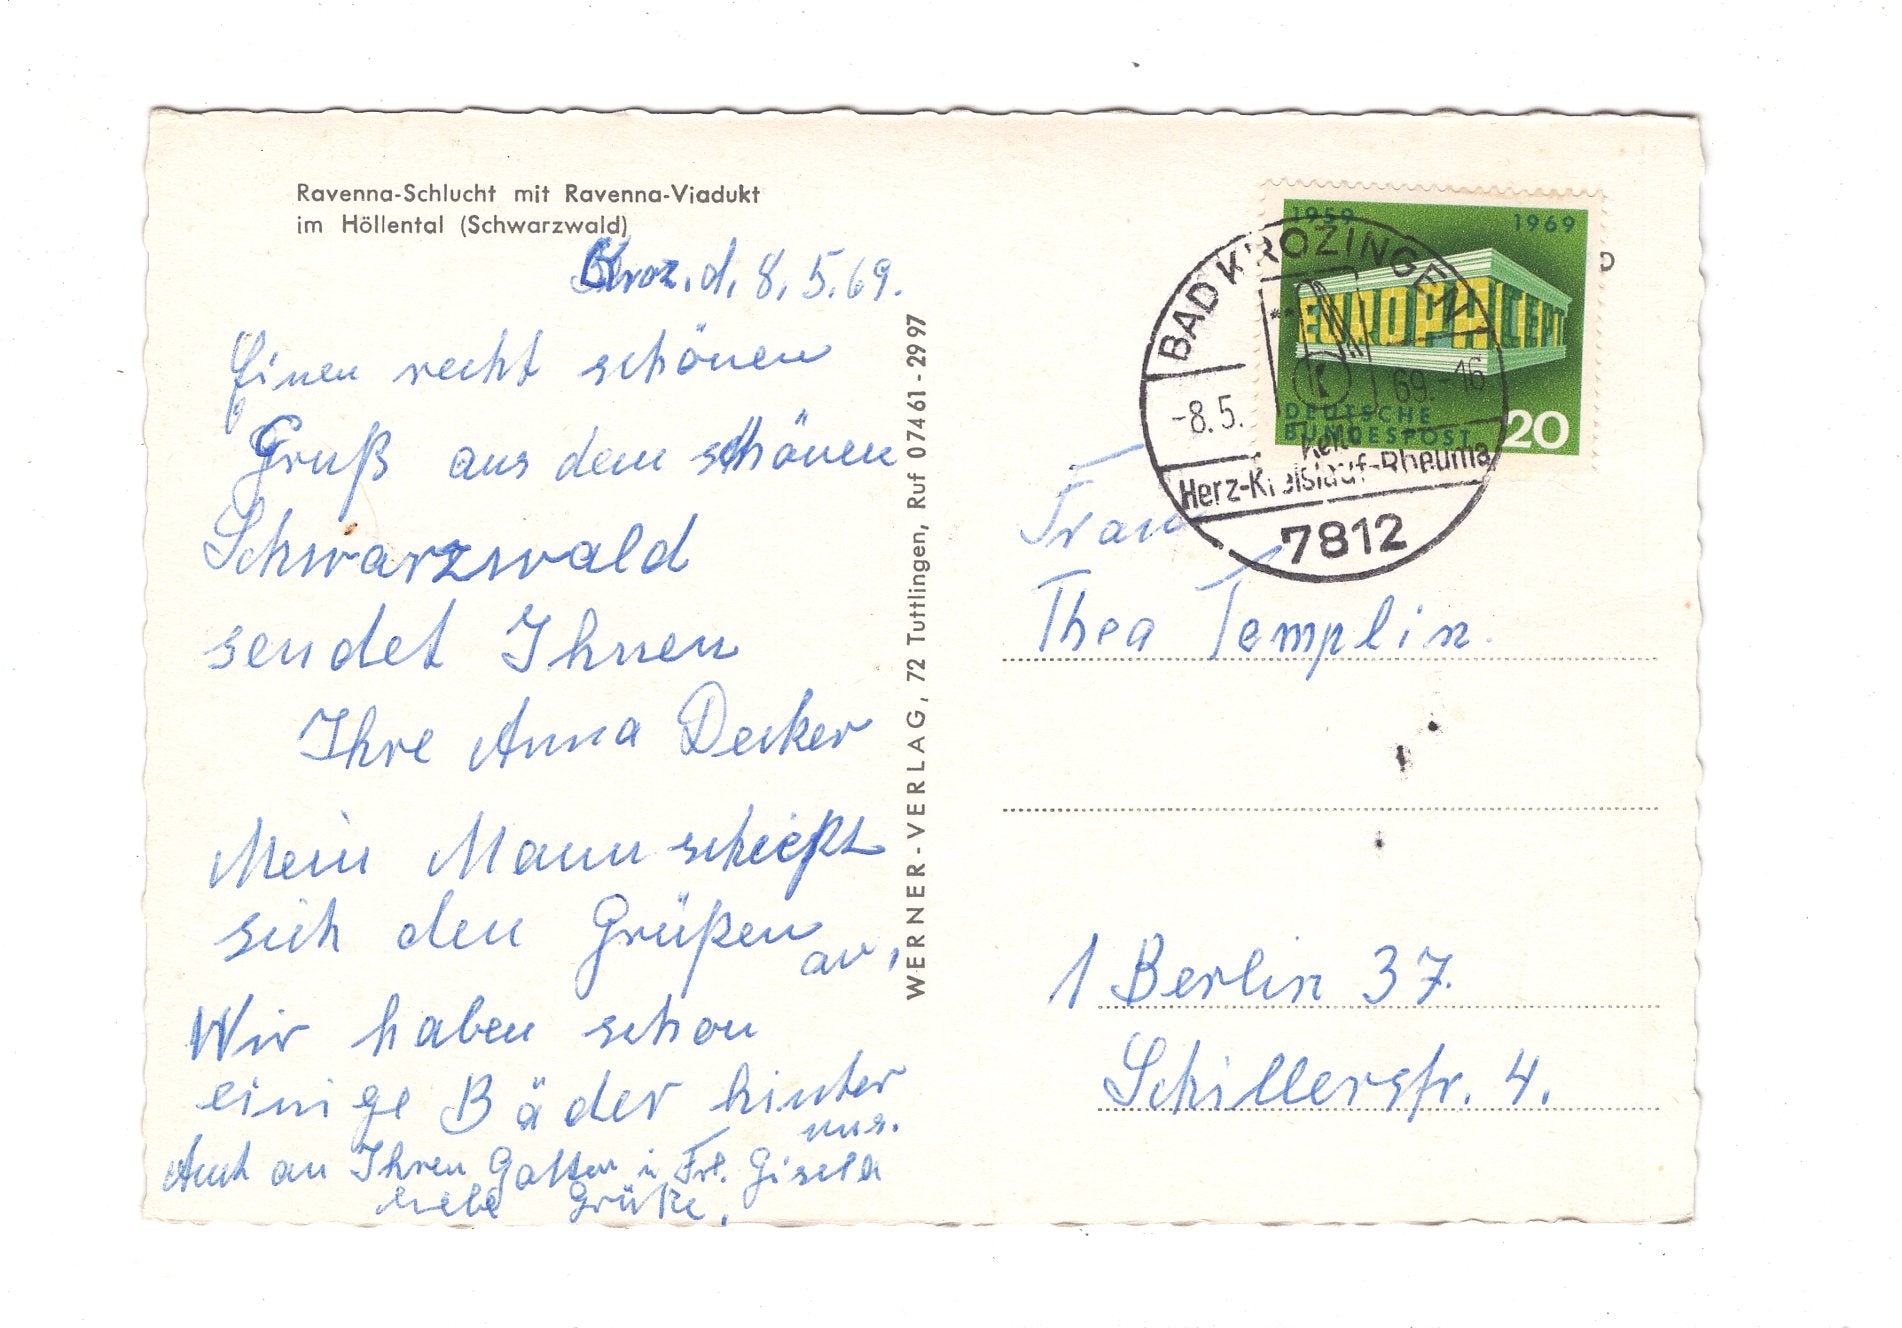 Ravenna-Schlucht mit Ravenna-Viadukt
im Höllental (Schwarzwald)
Kroz. d. 8. 5. 69.
Einen recht schönen
Gruß aus dem schönen
Schwarzwald
sendet Ihnen
Ihre Anna Decker
Mein Mann schießt
sich den Grüßen
an,
Wir haben schon
einige Bäder hinter
uns.
Auch an Ihren Gatten u Frl. Gisela
liebe Grüße.
WERNER-VERLAG, 72 Tuttlingen, Ruf 07461-2997
1959 1969
EUROPA CEPT
DEUTSCHE
BUNDESPOST
20
BAD KROZINGEN
-8.5. 69.-16
Herz-Kreislauf-Rheuma
7812
Frau
Thea Templin.
1 Berlin 37.
Schillerstr. 4.